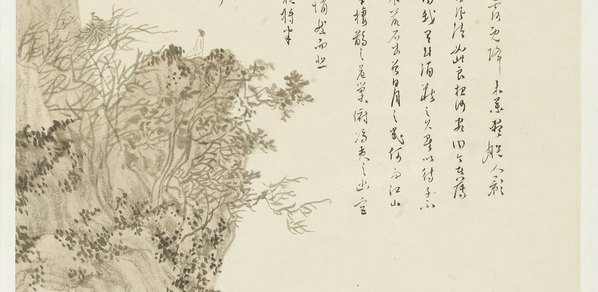 露既降木葉盡脫人影
風清如此良夜何客曰今者薄
曰我有斗酒藏之久矣以待子不
水落石出曾日月之幾何而江山
棲鶻之危巢俯馮夷之幽宮
悄然而悲
夜將半